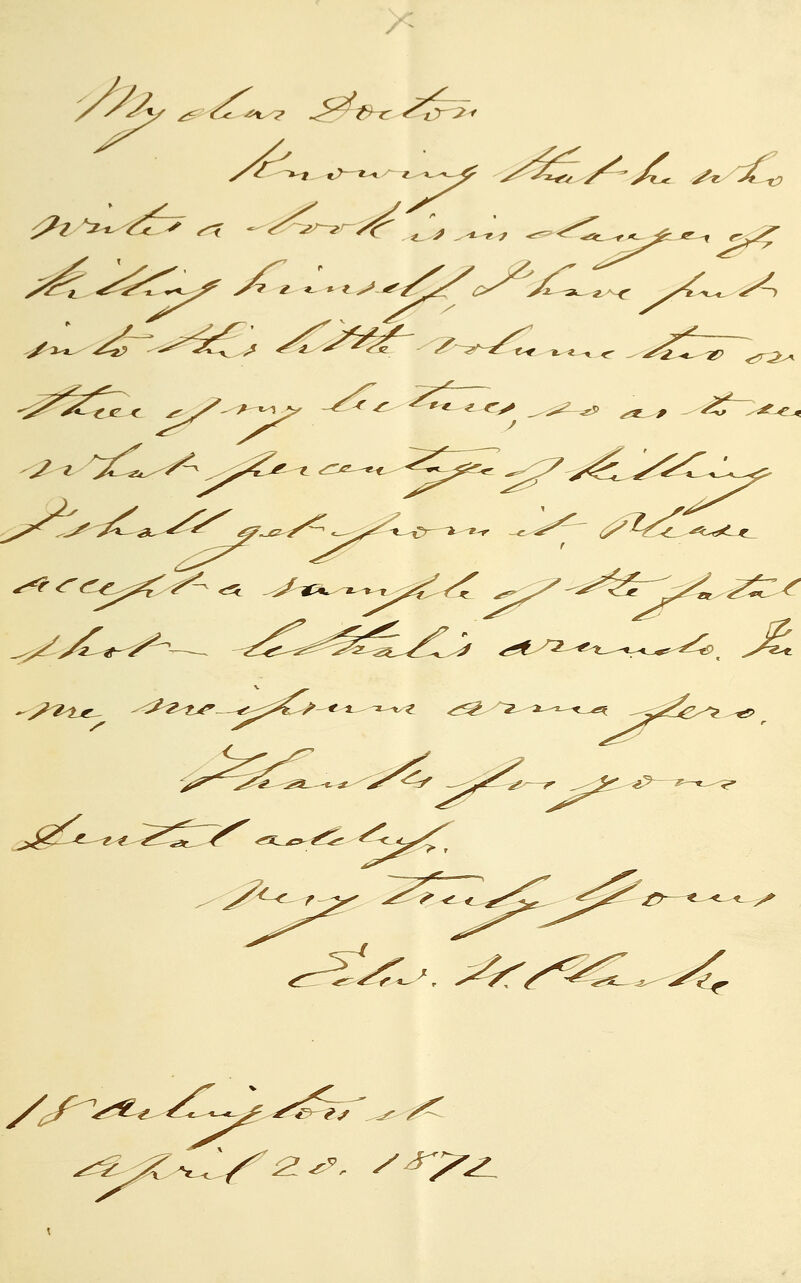 My dear Doctor
Knowing that he who
writes a book is in danger of
killing himself, I have put
into this little volume two or
three of my lectures, so as to see
what percentage of killing
I shall get from it. Please
accept a sample of the fatal
shot — lethalis arundo. In
me, me ipsum arma fero.
Thanks for your
Dental address.
Very truly Yours
Edw. H. Clarke
18 Arlington st
April 20. 1872